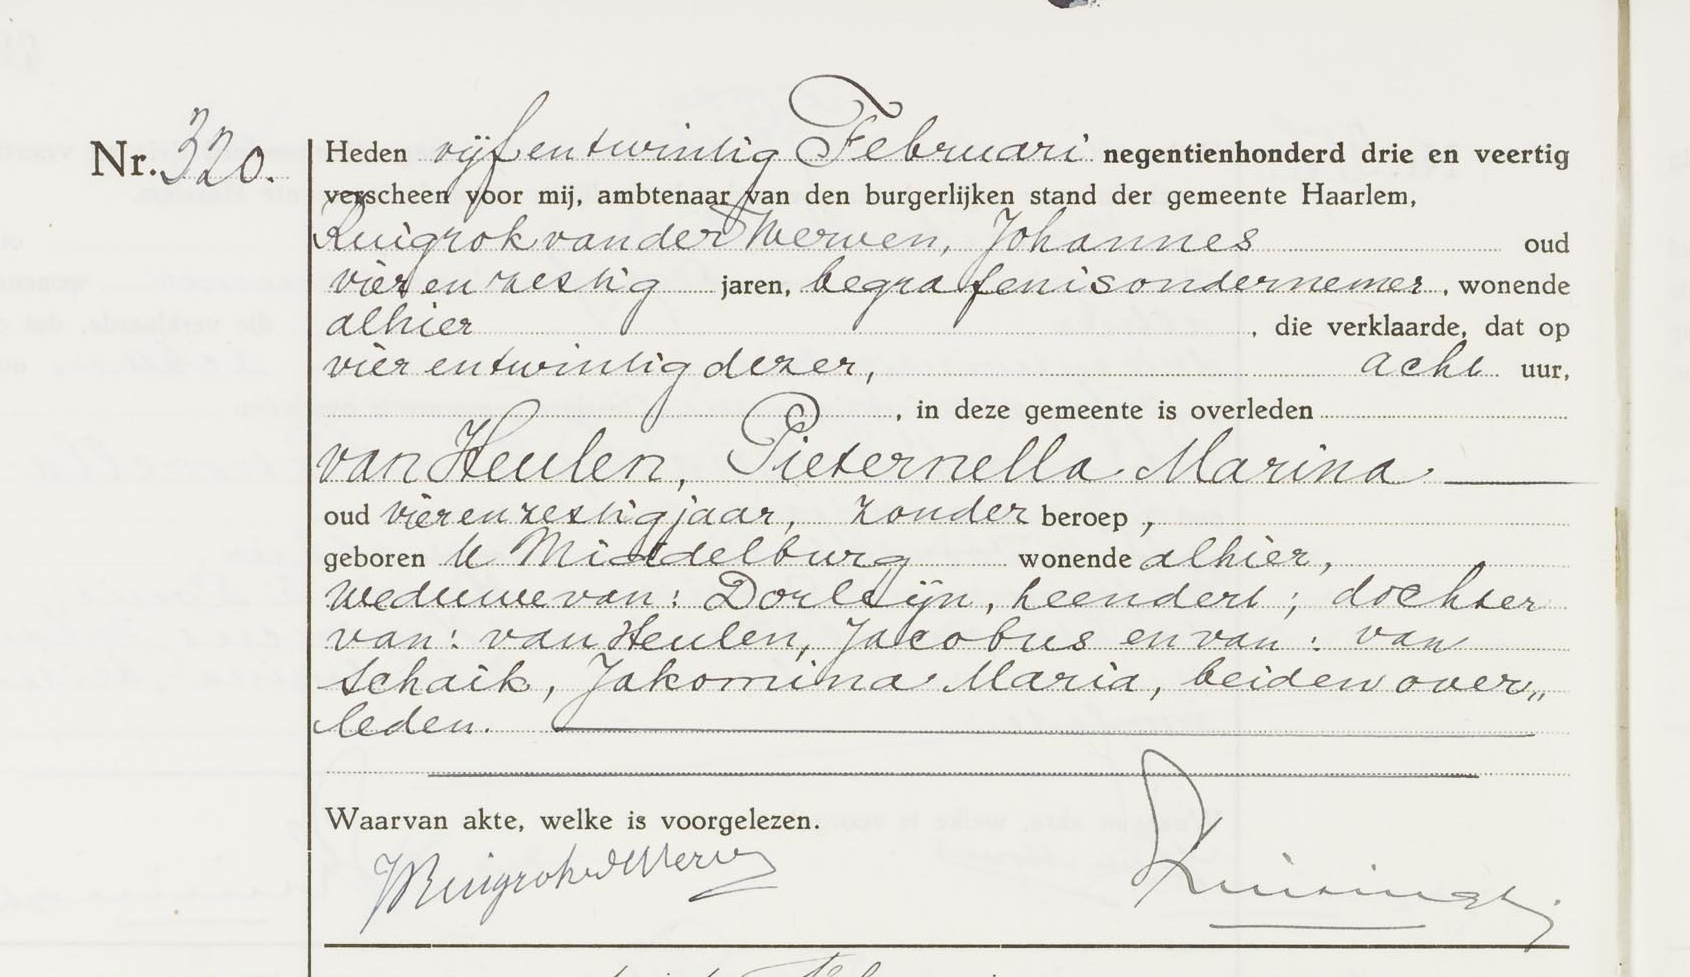 Nr. 320.
Heden vijf en twintig Februari negentienhonderd drie en veertig
verscheen voor mij, ambtenaar van den burgerlijken stand der gemeente Haarlem,
Ruigrok van der Werven, Johannes oud
vier en zestig jaren, begrafenisondernemer, wonende
alhier, die verklaarde, dat op
vier en twintig dezer, acht uur,
, in deze gemeente is overleden
van Heulen, Pieternella Marina
oud vier en zestig jaar, zonder beroep,
geboren te Middelburg wonende alhier,
weduwe van: Dorleijn, Leendert; dochter
van: van Heulen, Jacobus en van: van
Schaik, Jakomina Maria, beiden over„
leden.
Waarvan akte, welke is voorgelezen.
JRuigrokvdWerven